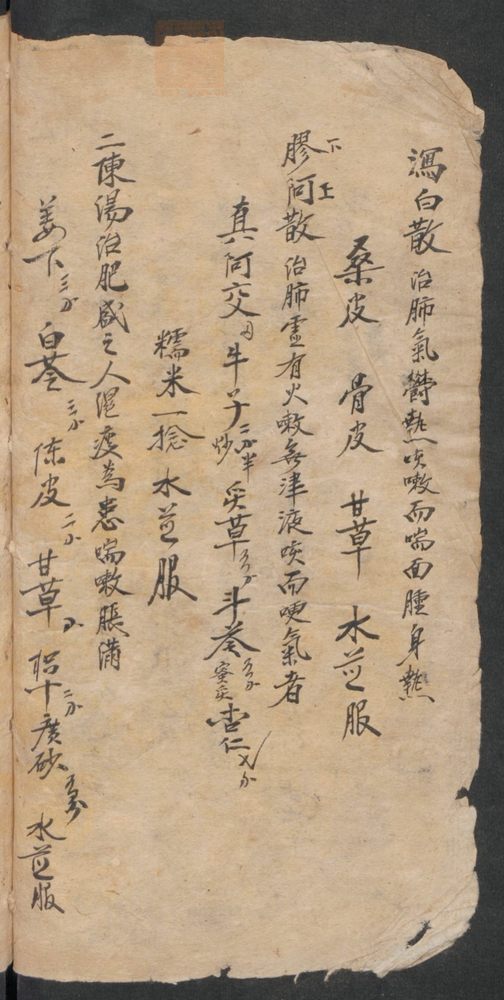 瀉白散治肺氣鬱熱咳嗽而喘面腫身熱
桑皮 骨皮 甘草 水煎服
膠下阿上散治肺虛有火嗽無津液咳而哽氣者
真阿交 牛子二分半炒 炙草 斗苓 蜜炙 杏仁
糯米一捻水煎服
二陳湯治肥咸之人濕痰為患喘嗽脹滿
姜下三分 白苓三分 陈皮二分 甘草 二分 砂 水煎服